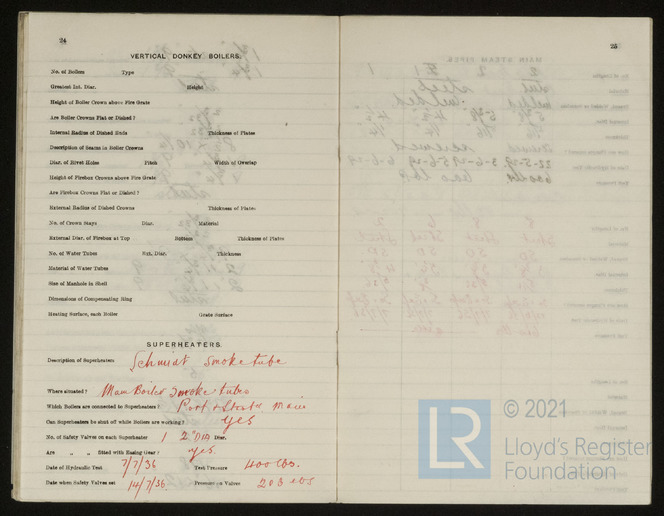 24
VERTICAL DONKEY BOILERS.
No. of Boilers Type
Greatest Int. Diar. Height
Height of Boiler Crown above Fire Grate
Are Boiler Crowns Flat or Dished?
Internal Radius of Dished Ends Thickness of Plates
Description of Seams in Boiler Crowns
Diar. of Rivet Holes Pitch Width of Overlap
Height of Firebox Crowns above Fire Grate
Are Firebox Crowns Flat or Dished?
External Radius of Dished Crowns Thickness of Plates
No. of Crown Stays Diar. Material
External Diar. of Firebox at Top Bottom Thickness of Plates
No. of Water Tubes Ext. Diar. Thickness
Material of Water Tubes
Size of Manhole in Shell
Dimensions of Compensating Ring
Heating Surface, each Boiler Grate Surface
SUPERHEATERS.
Description of Superheaters Schmidt Smoke tube
Where situated? Main Boiler Smoke tubes
Which Boilers are connected to Superheaters? Port & Starbd Main
Can Superheaters be shut off while Boilers are working? yes
No. of Safety Valves on each Superheater 1 2" Dia Diar.
Are „ „ fitted with Easing Gear? yes.
Date of Hydraulic Test 7/7/36 Test Pressure 400 lbs.
Date when Safety Valves set 14/7/36 Pressure on Valves 203 lbs
25
LR
© 2021
Lloyd's Register
Foundation